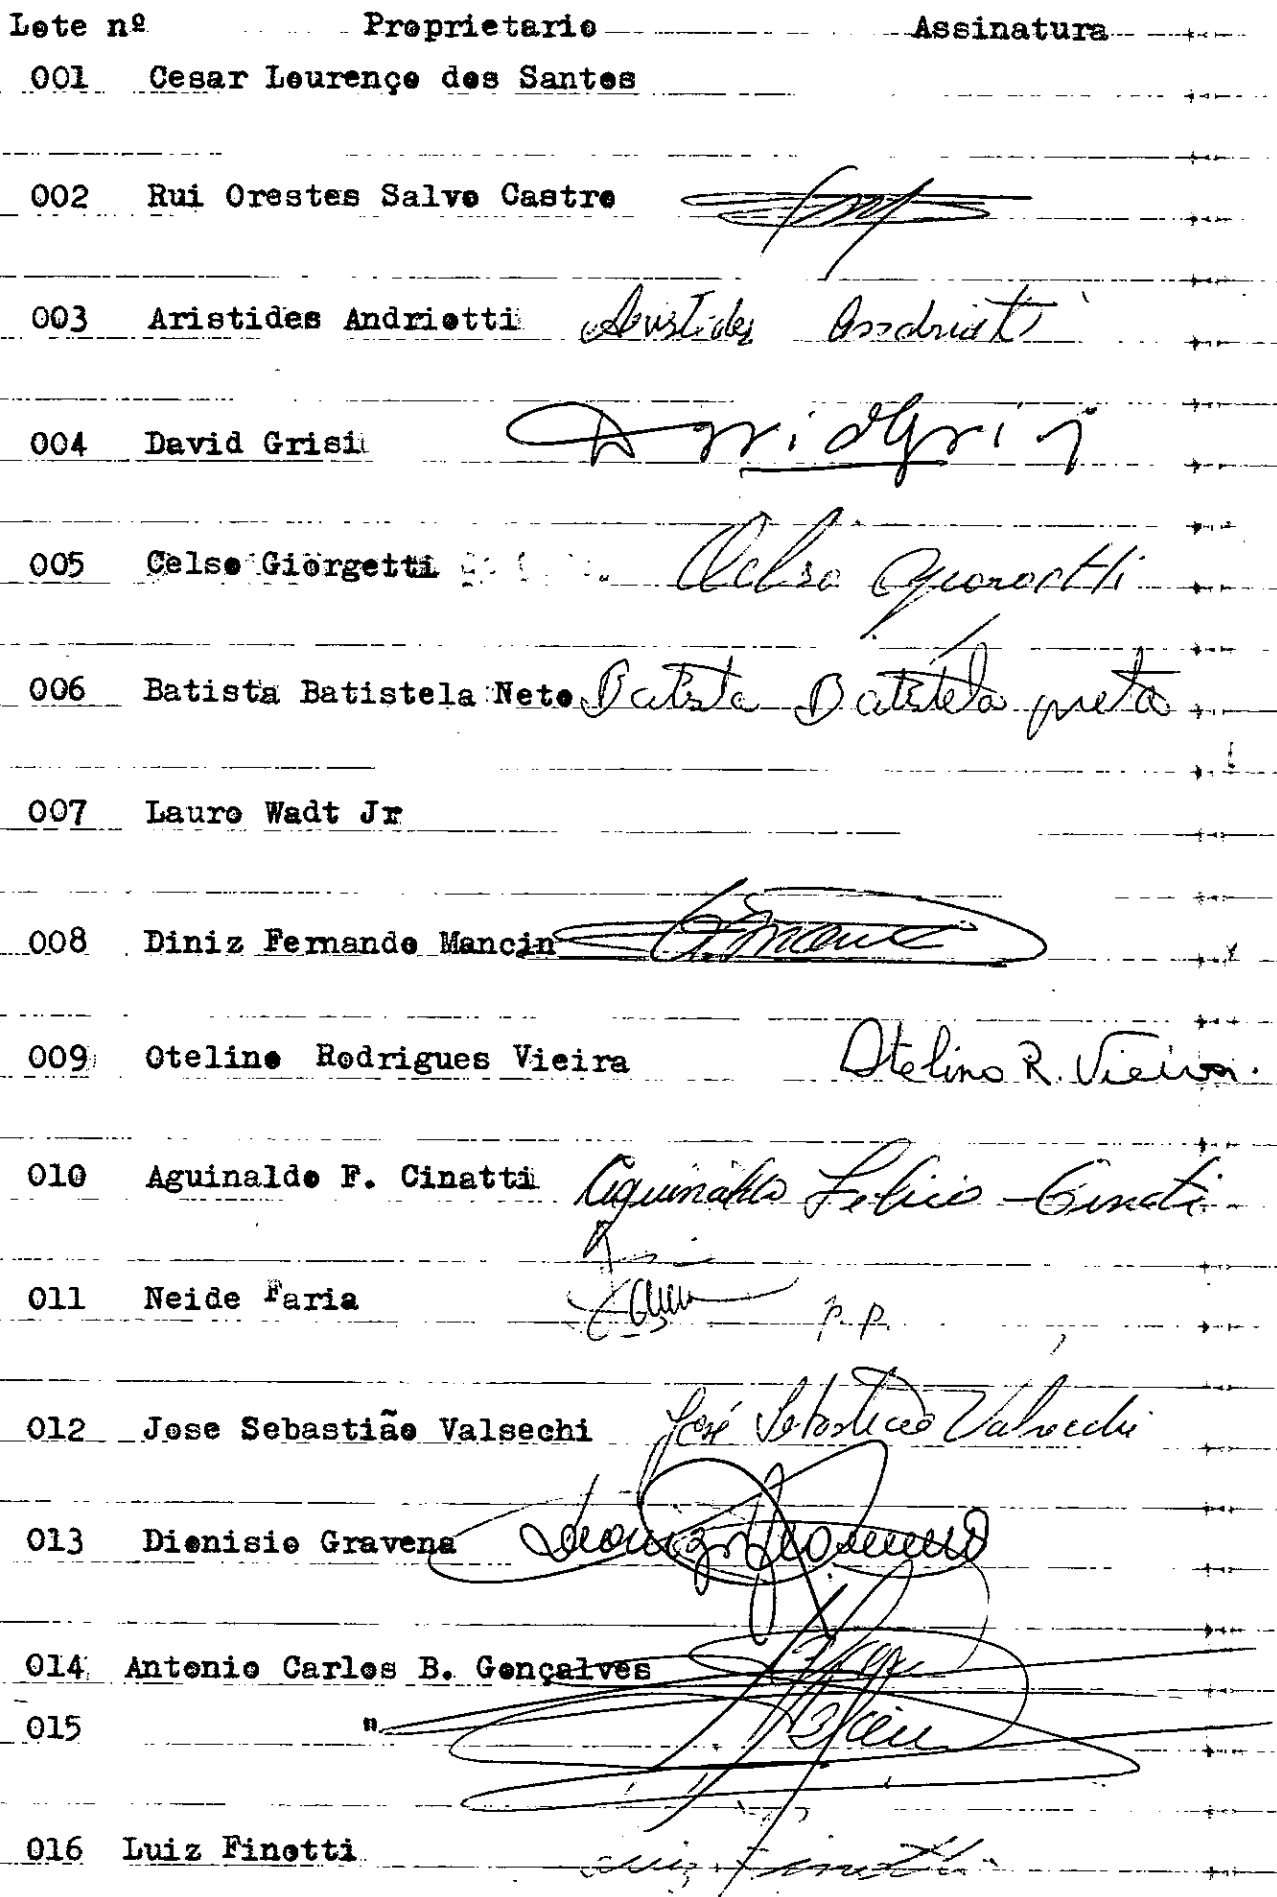 Lote nº Proprietario Assinatura
001 Cesar Lourenço dos Santos
002 Rui Orestes Salvo Castro
003 Aristides Andriotti Aristides Andriotti
004 David Grisi David Grisi
005 Celso Giorgetti Celso Giorgetti
006 Batista Batistela Neto Batista Batistela Neto
007 Lauro Wadt Jr
008 Diniz Fernando Mancin
009 Otelino Rodrigues Vieira Otelino R. Vieira.
010 Aguinaldo F. Cinatti Aguinaldo Felicio Cinati
011 Neide Faria p.p.
012 Jose Sebastião Valsechi José Sebastião Valsecchi
013 Dionisio Gravena
014 Antonio Carlos B. Gonçalves
015 "
016 Luiz Finotti Luiz Finotti